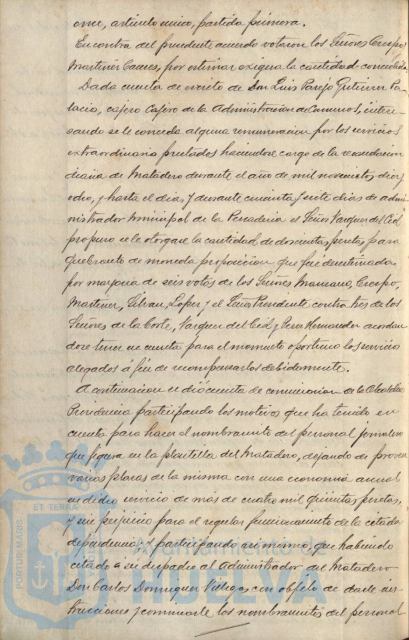 once, artículo único, partida primera.
En contra del precedente acuerdo votaron los Señores Crespo,
Martinez Cacues, por estimar exigua la cantidad concedida.
Dada cuenta de escrito de Don Luis Parejo Gutierrez Pa-
lacio, cajero de la Administración de Consumos, intere-
sando se le conceda alguna remuneracion por los servicios
extraordinarios prestados haciendose cargo de la recaudacion
diaria de Matadero durante el año de mil novecientos diez y
ocho, y hasta el dia, y durante cincuenta y siete dias de admi-
nistrador municipal de la Panaderia el Señor Vazquez del Cid
propuso se le otorgue la cantidad de doscientas pesetas para
quebranto de moneda proposicion que fue desestimada
por mayoria de seis votos de los Señores Mascaros, Crespo,
Martinez, Silvan, Lopez y el Señor Presidente contra tres de los
Señores de la Corte, Vazquez del Cid y Perez Hernandez acordan-
dose tener en cuenta para el momento oportuno los servicios
alegados á fin de recompensarlos debidamente.
A continuacion se dió cuenta de comunicacion de la Alcaldia
Presidencia participando los motivos que ha tenido en
cuenta para hacer el nombramiento del personal jornalero
que figura en la plantilla del Matadero, dejando de proveer
varias plazas de la misma con una economia anual
en dicho servicio de más de cuatro mil quinientas pesetas,
y sin perjuicio para el regular funcionamiento de la citada
dependencia; y participando asi mismo, que habiendo
citado a su despacho al Administrador del Matadero
Don Carlos Dominguez Villegas con objeto de darle ins-
trucciones y comunicarle los nombramientos del personal
PORTUS MARIS
ET TERRÆ
Ayuntamiento de
HUELVA